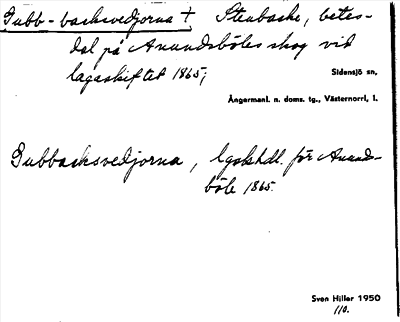 Gubb-backsvedjorna †, Stenbacke, betes-
dal på Anundsböles skog vid
lagaskiftet 1865;
Sidensjö sn,
Ångermanl. n. doms. tg., Västernorrl, l.
Gubbacksvedjorna, lgskhdl. för Anunds-
böle 1865.
Sven Hiller 1950
110.